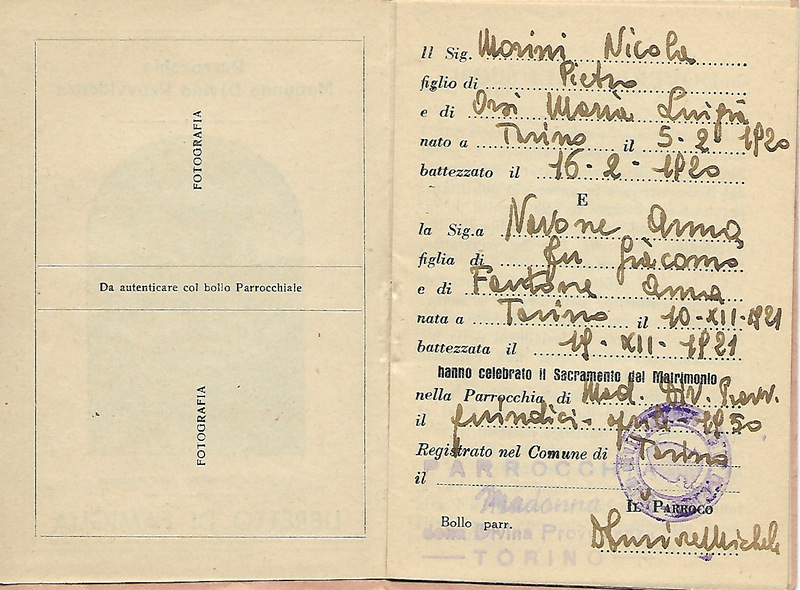 FOTOGRAFIA
Da autenticare col bollo Parrocchiale
FOTOGRAFIA
Il Sig. Morini Nicola
figlio di Pietro
e di Orsi Maria Luigia
nato a Torino il 5-2-1920
battezzato il 16-2-1920
E
la Sig.a Nevone Anna
figlia di fu Giacomo
e di Fantone Anna
nata a Torino il 10-XII-1921
battezzata il 18-XII-1921
hanno celebrato il Sacramento del Matrimonio
nella Parrocchia di Mad. Div. Provv.
il quindici-aprile-1950
Registrato nel Comune di Torino
il
PARROCCHIA
Madonna
della Divina Provv
TORINO
IL PARROCO
Bollo parr.
Michele